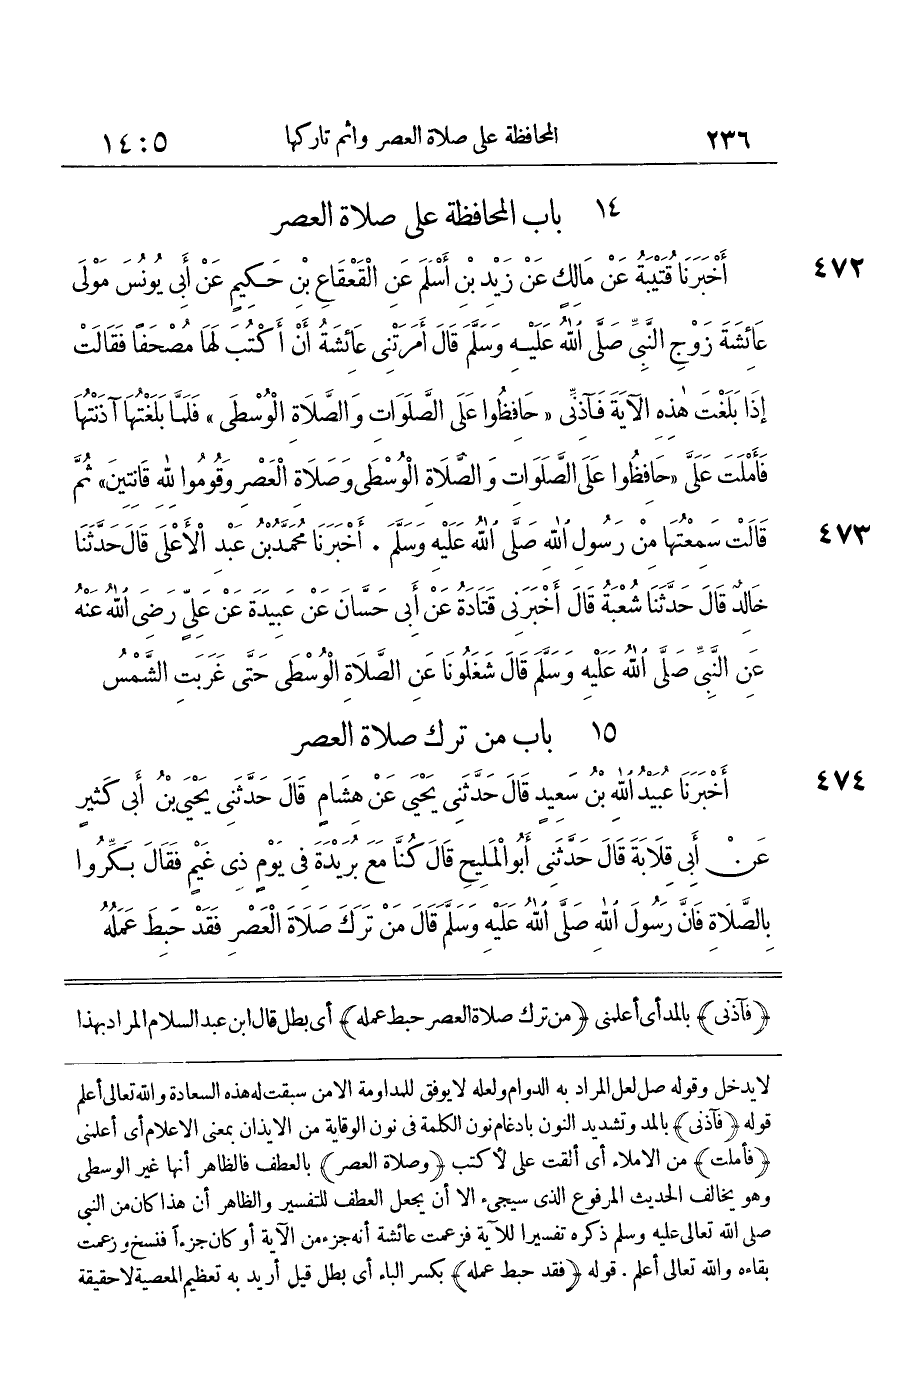 ٢٣٦ المحافظة على صلاة العصر واثم تاركها ١٤:٥
١٤ باب المحافظة على صلاة العصر
٤٧٢ أَخْبَرَنَا قُتَيْبَةُ عَنْ مَالِكٍ عَنْ زَيْدِ بْنِ أَسْلَمَ عَنِ الْقَعْقَاعِ بْنِ حَكِيمٍ عَنْ أَبِي يُونُسَ مَوْلَى
عَائِشَةَ زَوْجِ النَّبِيِّ صَلَّى اللهُ عَلَيْهِ وَسَلَّمَ قَالَ أَمَرَتْنِي عَائِشَةُ أَنْ أَكْتُبَ لَهَا مُصْحَفًا فَقَالَتْ
إِذَا بَلَغْتَ هٰذِهِ الآيَةَ فَآذِنِّي «حَافِظُوا عَلَى الصَّلَوَاتِ وَالصَّلَاةِ الْوُسْطَى» فَلَمَّا بَلَغْتُهَا آذَنْتُهَا
فَأَمْلَتْ عَلَىَّ «حَافِظُوا عَلَى الصَّلَوَاتِ وَالصَّلَاةِ الْوُسْطَى وَصَلَاةِ الْعَصْرِ وَقُومُوا للهِ قَانِتِينَ» ثُمَّ
٤٧٣ قَالَتْ سَمِعْتُهَا مِنْ رَسُولِ اللهِ صَلَّى اللهُ عَلَيْهِ وَسَلَّمَ . أَخْبَرَنَا مُحَمَّدُ بْنُ عَبْدِ الْأَعْلَى قَالَ حَدَّثَنَا
خَالِدٌ قَالَ حَدَّثَنَا شُعْبَةُ قَالَ أَخْبَرَنِي قَتَادَةُ عَنْ أَبِي حَسَّانَ عَنْ عَبِيدَةَ عَنْ عَلِيٍّ رَضِيَ اللهُ عَنْهُ
عَنِ النَّبِيِّ صَلَّى اللهُ عَلَيْهِ وَسَلَّمَ قَالَ شَغَلُونَا عَنِ الصَّلَاةِ الْوُسْطَى حَتَّى غَرَبَتِ الشَّمْسُ
١٥ باب من ترك صلاة العصر
٤٧٤ أَخْبَرَنَا عُبَيْدُ اللهِ بْنُ سَعِيدٍ قَالَ حَدَّثَنِي يَحْيَى عَنْ هِشَامٍ قَالَ حَدَّثَنِي يَحْيَى بْنُ أَبِي كَثِيرٍ
عَنْ أَبِي قِلَابَةَ قَالَ حَدَّثَنِي أَبُو الْمَلِيحِ قَالَ كُنَّا مَعَ بُرَيْدَةَ فِي يَوْمٍ ذِي غَيْمٍ فَقَالَ بَكِّرُوا
بِالصَّلَاةِ فَإِنَّ رَسُولَ اللهِ صَلَّى اللهُ عَلَيْهِ وَسَلَّمَ قَالَ مَنْ تَرَكَ صَلَاةَ الْعَصْرِ فَقَدْ حَبِطَ عَمَلُهُ
﴿فآذنى﴾ بالمد أى أعلمنى ﴿من ترك صلاة العصر حبط عمله﴾ أى بطل قال ابن عبد السلام المراد بهذا
لا يدخل وقوله صل لعل المراد به الدوام ولعله لا يوفق للمداومة الا من سبقت له هذه السعادة والله تعالى أعلم
قوله ﴿فآذنى﴾ بالمد وتشديد النون بادغام نون الكلمة فى نون الوقاية من الايذان بمعنى الاعلام أى أعلمنى
﴿فأملت﴾ من الاملاء أى ألقت على لأكتب ﴿وصلاة العصر﴾ بالعطف فالظاهر أنها غير الوسطى
وهو يخالف الحديث المرفوع الذى سيجىء الا أن يجعل العطف للتفسير والظاهر أن هذا كان من النبى
صلى الله تعالى عليه وسلم ذكره تفسيرا للآية فزعمت عائشة أنه جزء من الآية أو كان جزءاً فنسخ وزعمت
بقاءه والله تعالى أعلم . قوله ﴿فقد حبط عمله﴾ بكسر الباء أى بطل قيل أريد به تعظيم المعصية لا حقيقة